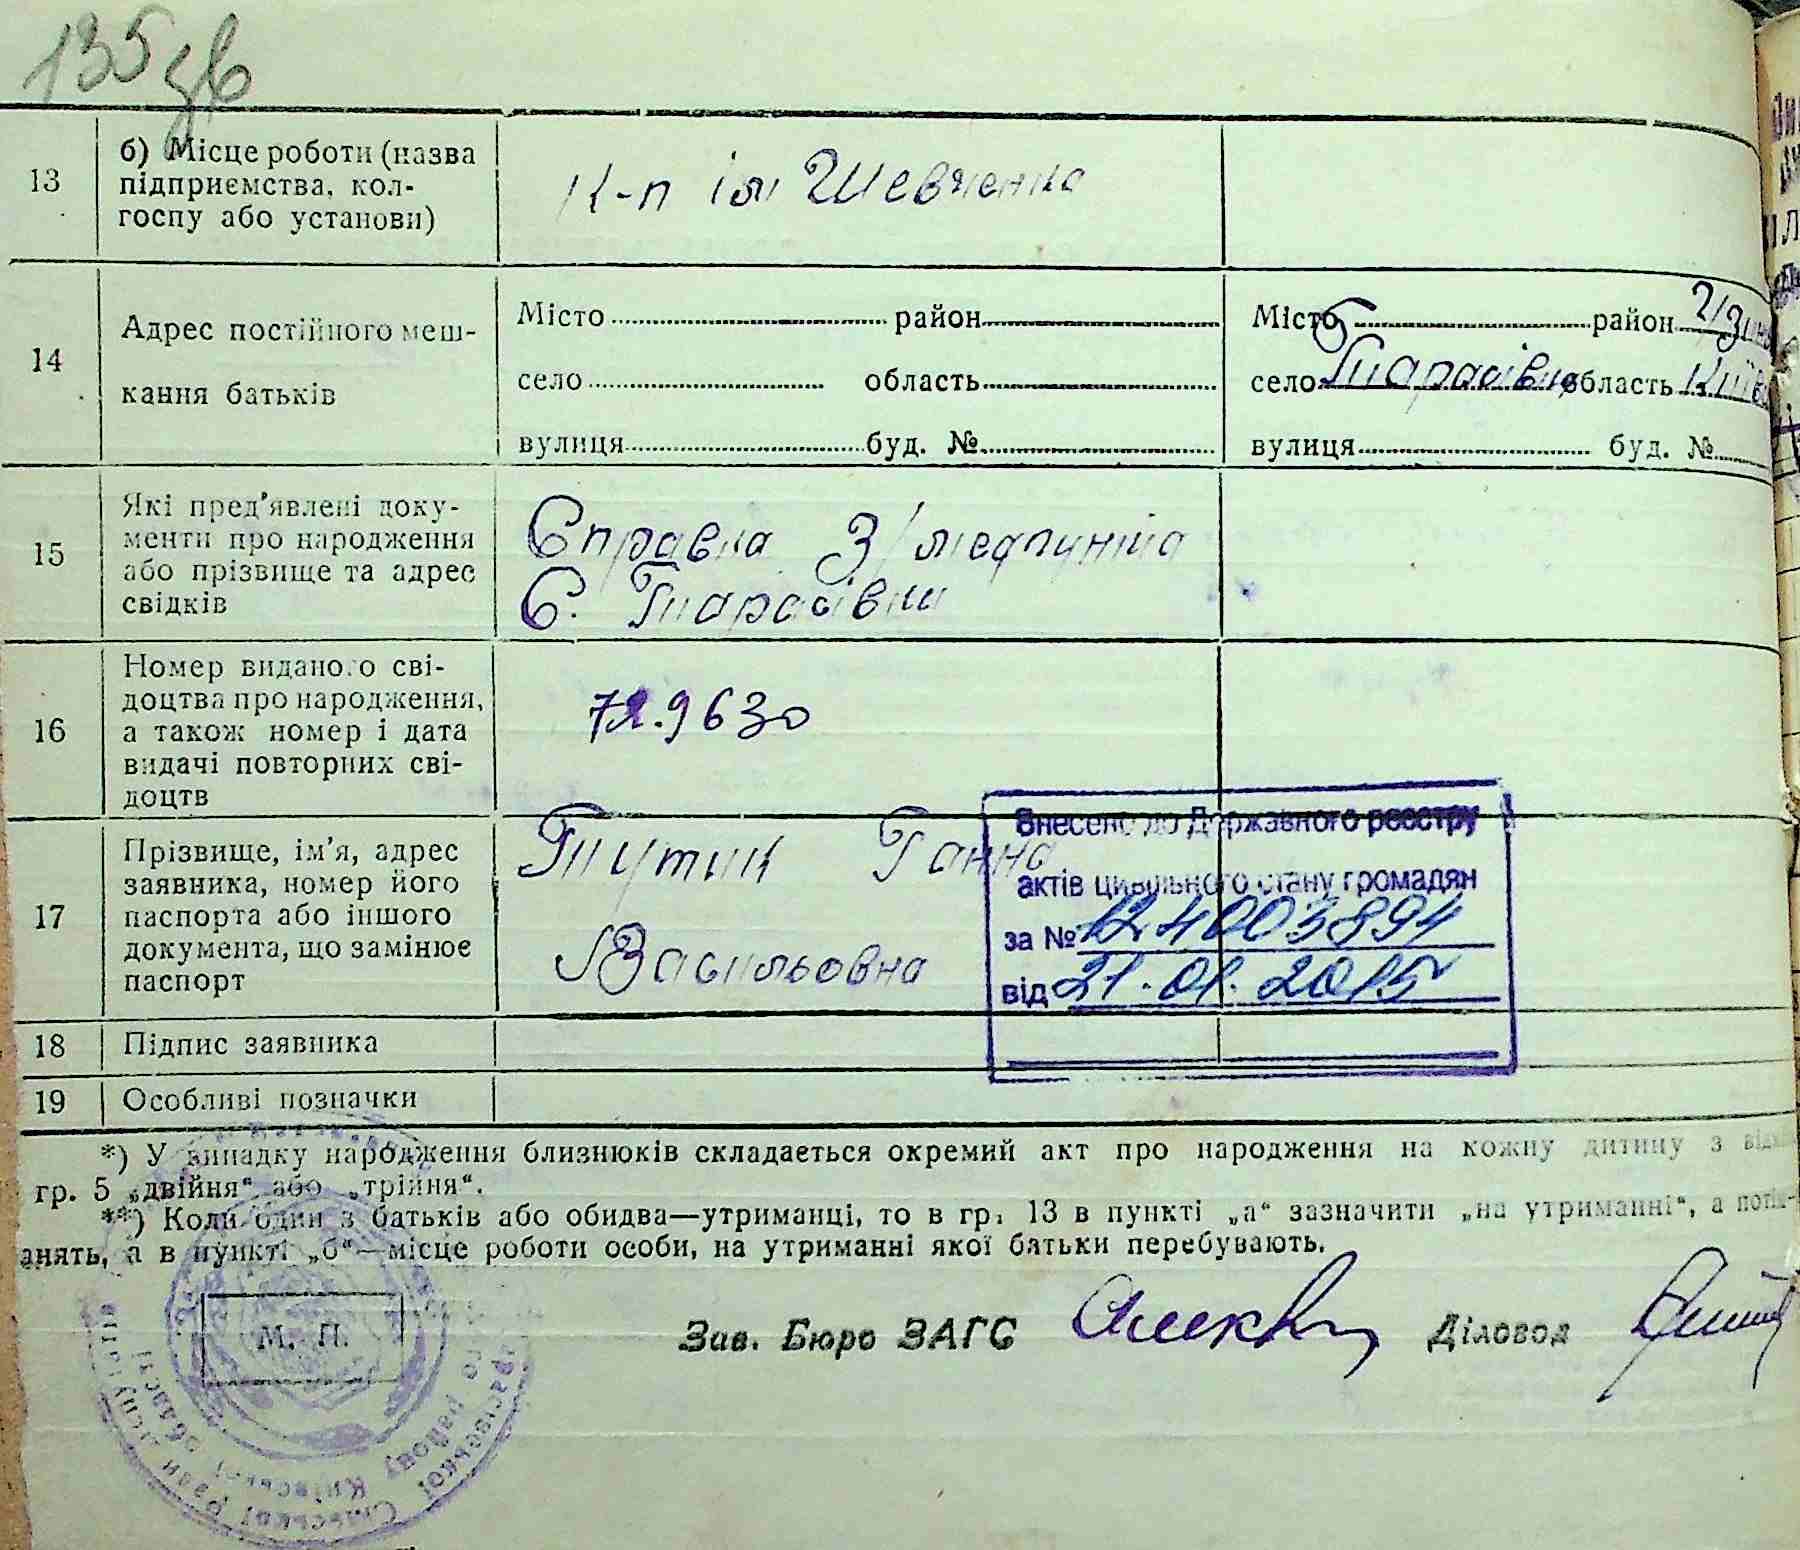 135 зв
13 б) Місце роботи (назва
підприємства, кол-
госпу або установи)
К-п ім Шевченка
14 Адрес постійного меш-
кання батьків
Місто район
село область
вулиця буд. №
Місто район
село Тарасівка область Київ
вулиця буд. №
15 Які пред'явлені доку-
менти про народження
або прізвище та адрес
свідків
Справка З/медпункта
С. Тарасівки
16 Номер виданого сві-
доцтва про народження,
а також номер і дата
видачі повторних сві-
доцтв
9630
17 Прізвище, ім'я, адрес
заявника, номер його
паспорта або іншого
документа, що замінює
паспорт
Тутик Ганна
Васильовна
Внесено до Державного реєстру
актів цивільного стану громадян
за № 124003894
від 21.01.2015
18 Підпис заявника
19 Особливі позначки
*) У випадку народження близнюків складається окремий акт про народження на кожну дитину з
гр. 5 „двійня“ або „трійня“.
**) Коли один з батьків або обидва—утриманці, то в гр. 13 в пункті „а“ зазначити „на утриманні“, а
анять, а в пункті „б“—місце роботи особи, на утриманні якої батьки перебувають.
М. П.
Зав. Бюро ЗАГС Діловод
Сільської ради
району Київської області